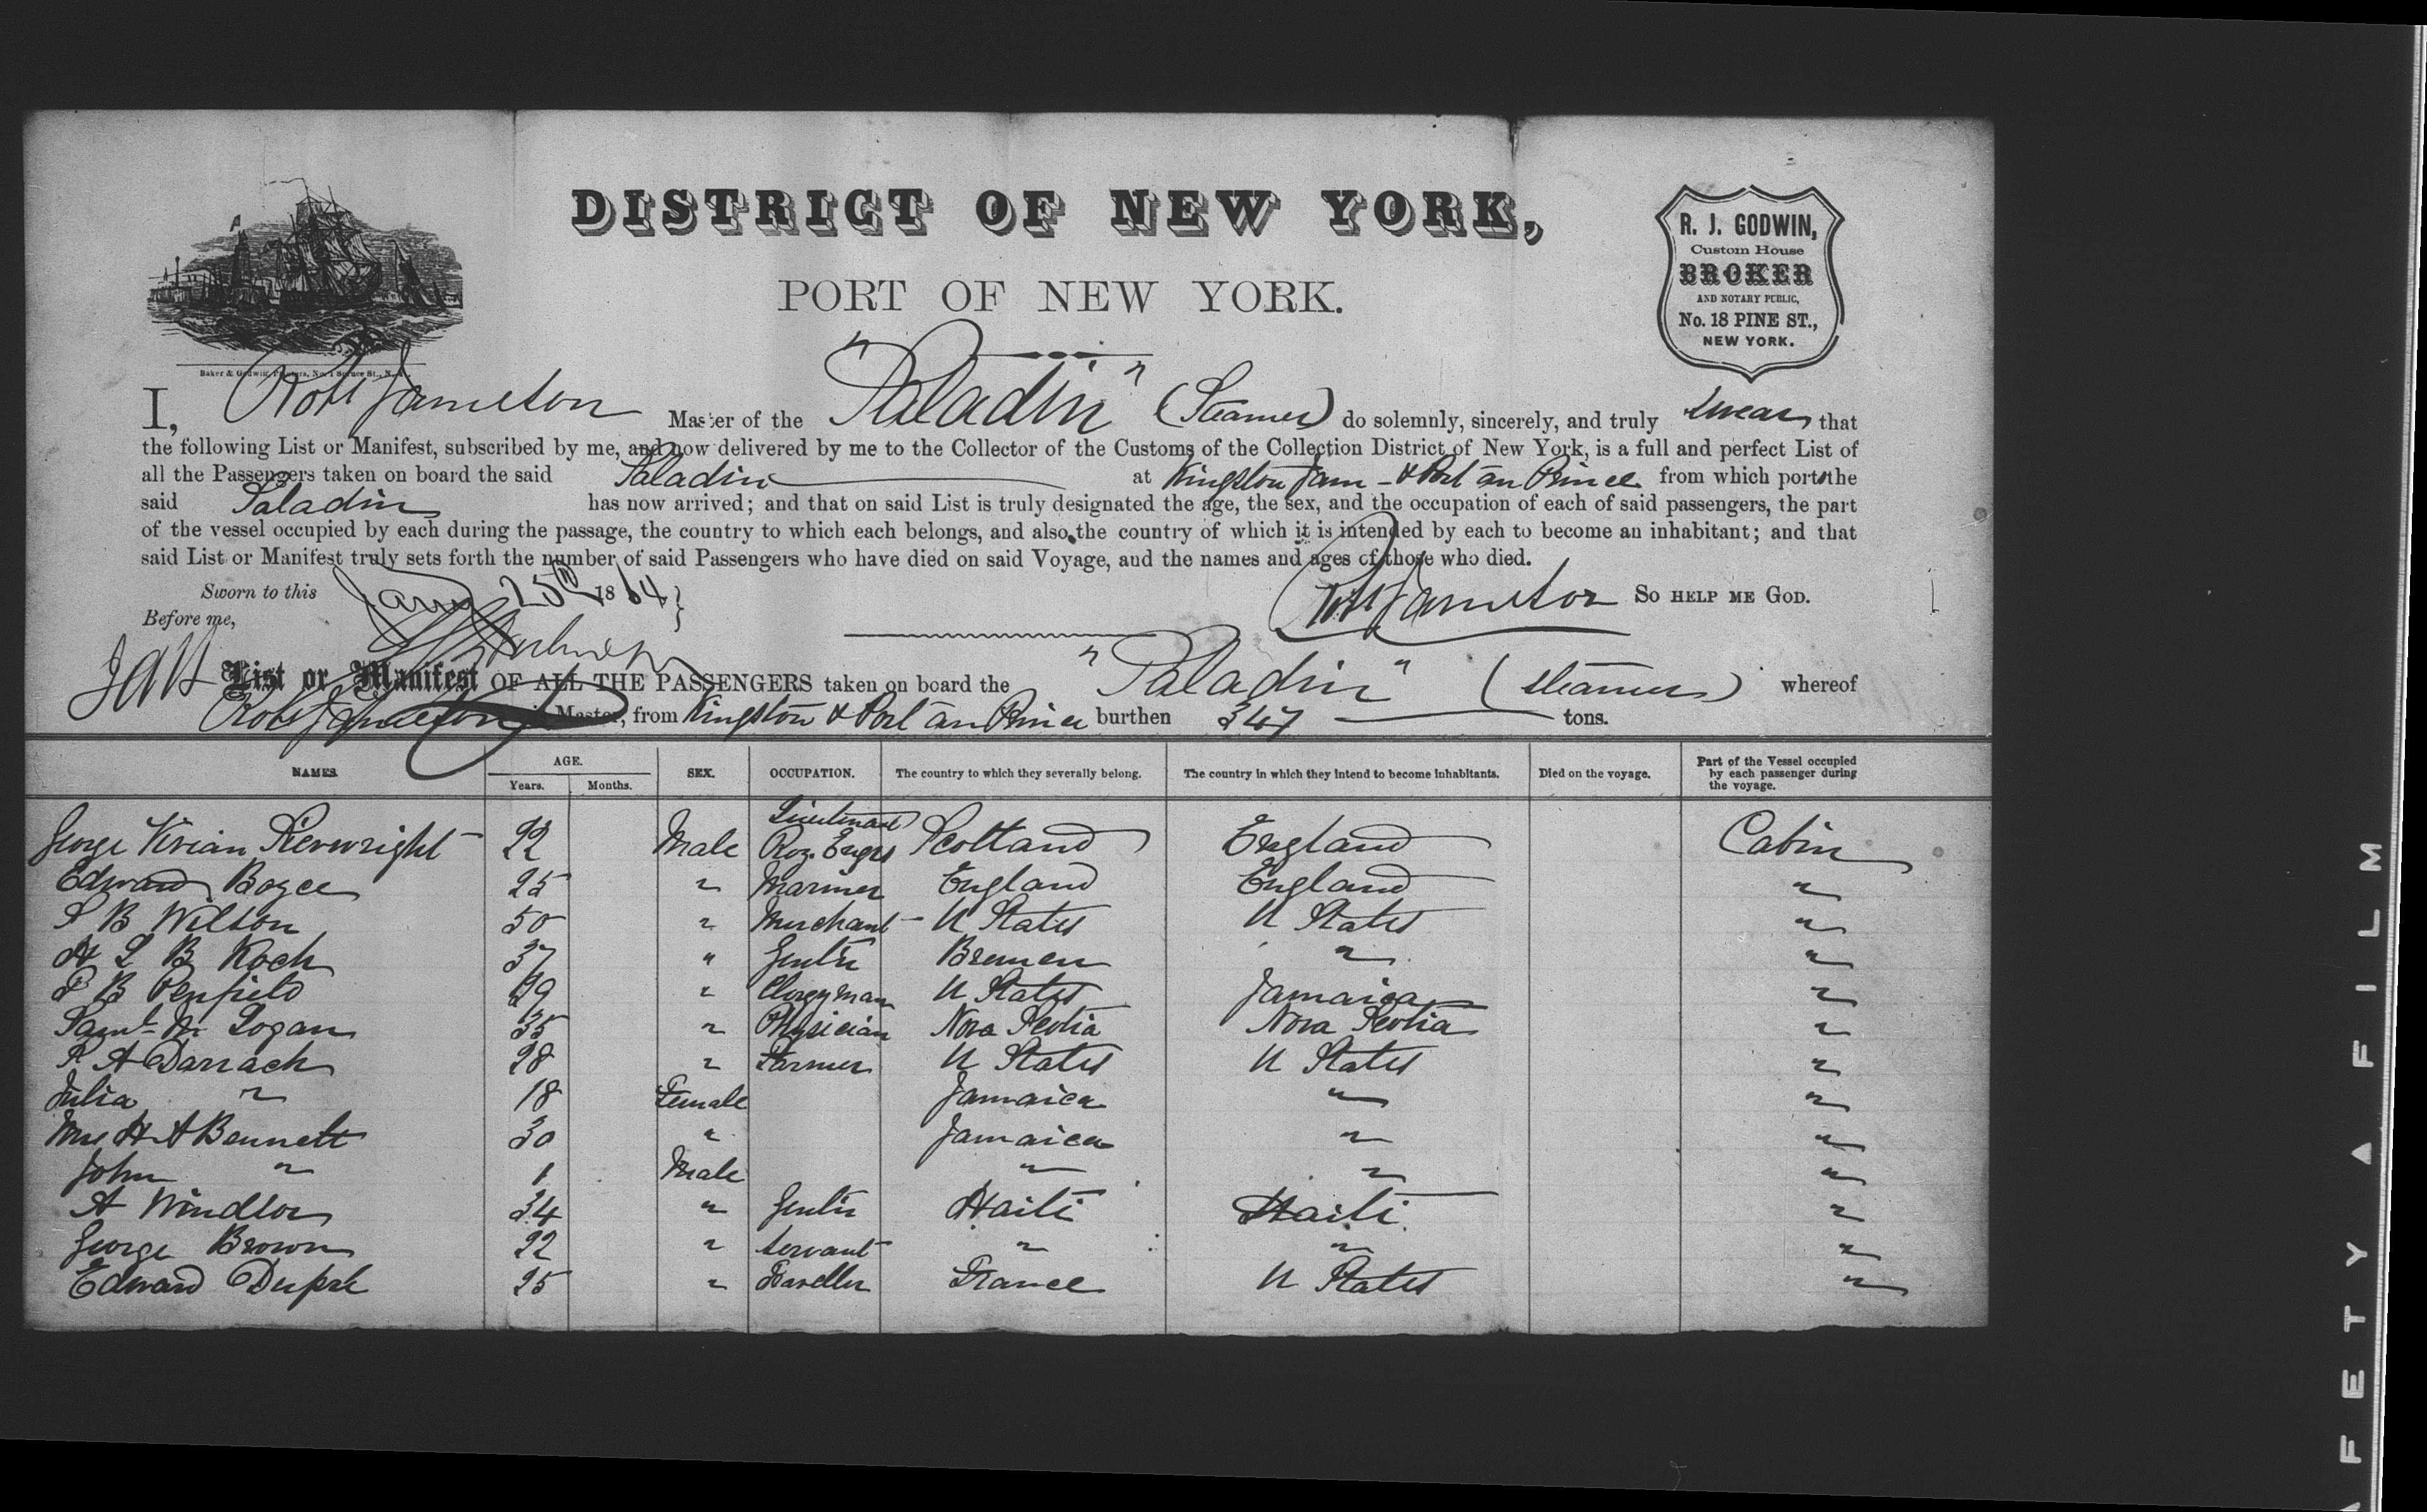 DISTRICT OF NEW YORK,
PORT OF NEW YORK.
R. J. GODWIN,
Custom House
BROKER
AND NOTARY PUBLIC,
No. 18 PINE ST.,
NEW YORK.
Baker & Godwin, Printers, No. 1 Spruce St., N. Y.
I, Robt Jamieson Master of the "Paladin" (Steamer) do solemnly, sincerely, and truly swear that
the following List or Manifest, subscribed by me, and now delivered by me to the Collector of the Customs of the Collection District of New York, is a full and perfect List of
all the Passengers taken on board the said Paladin at Kingston Jam - & Port au Prince from which ports the
said Paladin has now arrived; and that on said List is truly designated the age, the sex, and the occupation of each of said passengers, the part
of the vessel occupied by each during the passage, the country to which each belongs, and also the country of which it is intended by each to become an inhabitant; and that
said List or Manifest truly sets forth the number of said Passengers who have died on said Voyage, and the names and ages of those who died.
Sworn to this Jany 25th 1864 Robt Jamieson SO HELP ME GOD.
Before me,
List or Manifest OF ALL THE PASSENGERS taken on board the "Paladin" (Steamer) whereof
Robt Jamieson is Master, from Kingston & Port au Prince burthen 347 tons.
NAMES. AGE. Years. Months. SEX. OCCUPATION. The country to which they severally belong. The country in which they intend to become inhabitants. Died on the voyage. Part of the Vessel occupied by each passenger during the voyage.
George Vivian 22 Male Lieutenant Roy. Engrs Scotland England Cabin
Edward Boyce 25 " Mariner England England "
S B Wilson 50 " Merchant U States U States "
H L B Koch 37 " Gentn Bremen " "
S B Penfield 29 " Clergyman U States Jamaica "
Saml Logan 35 " Physician Nova Scotia Nova Scotia "
R A Darrach 28 " Farmer U States U States "
Julia " 18 Female Jamaica " "
Mrs H A Bennett 30 " Jamaica " "
John " 1 Male " " "
A Windsor 34 " Gentn Haiti Haiti "
George Brown 22 " Servant " " "
Edward Dupré 25 " Traveller France U States "
AFETY A FILM